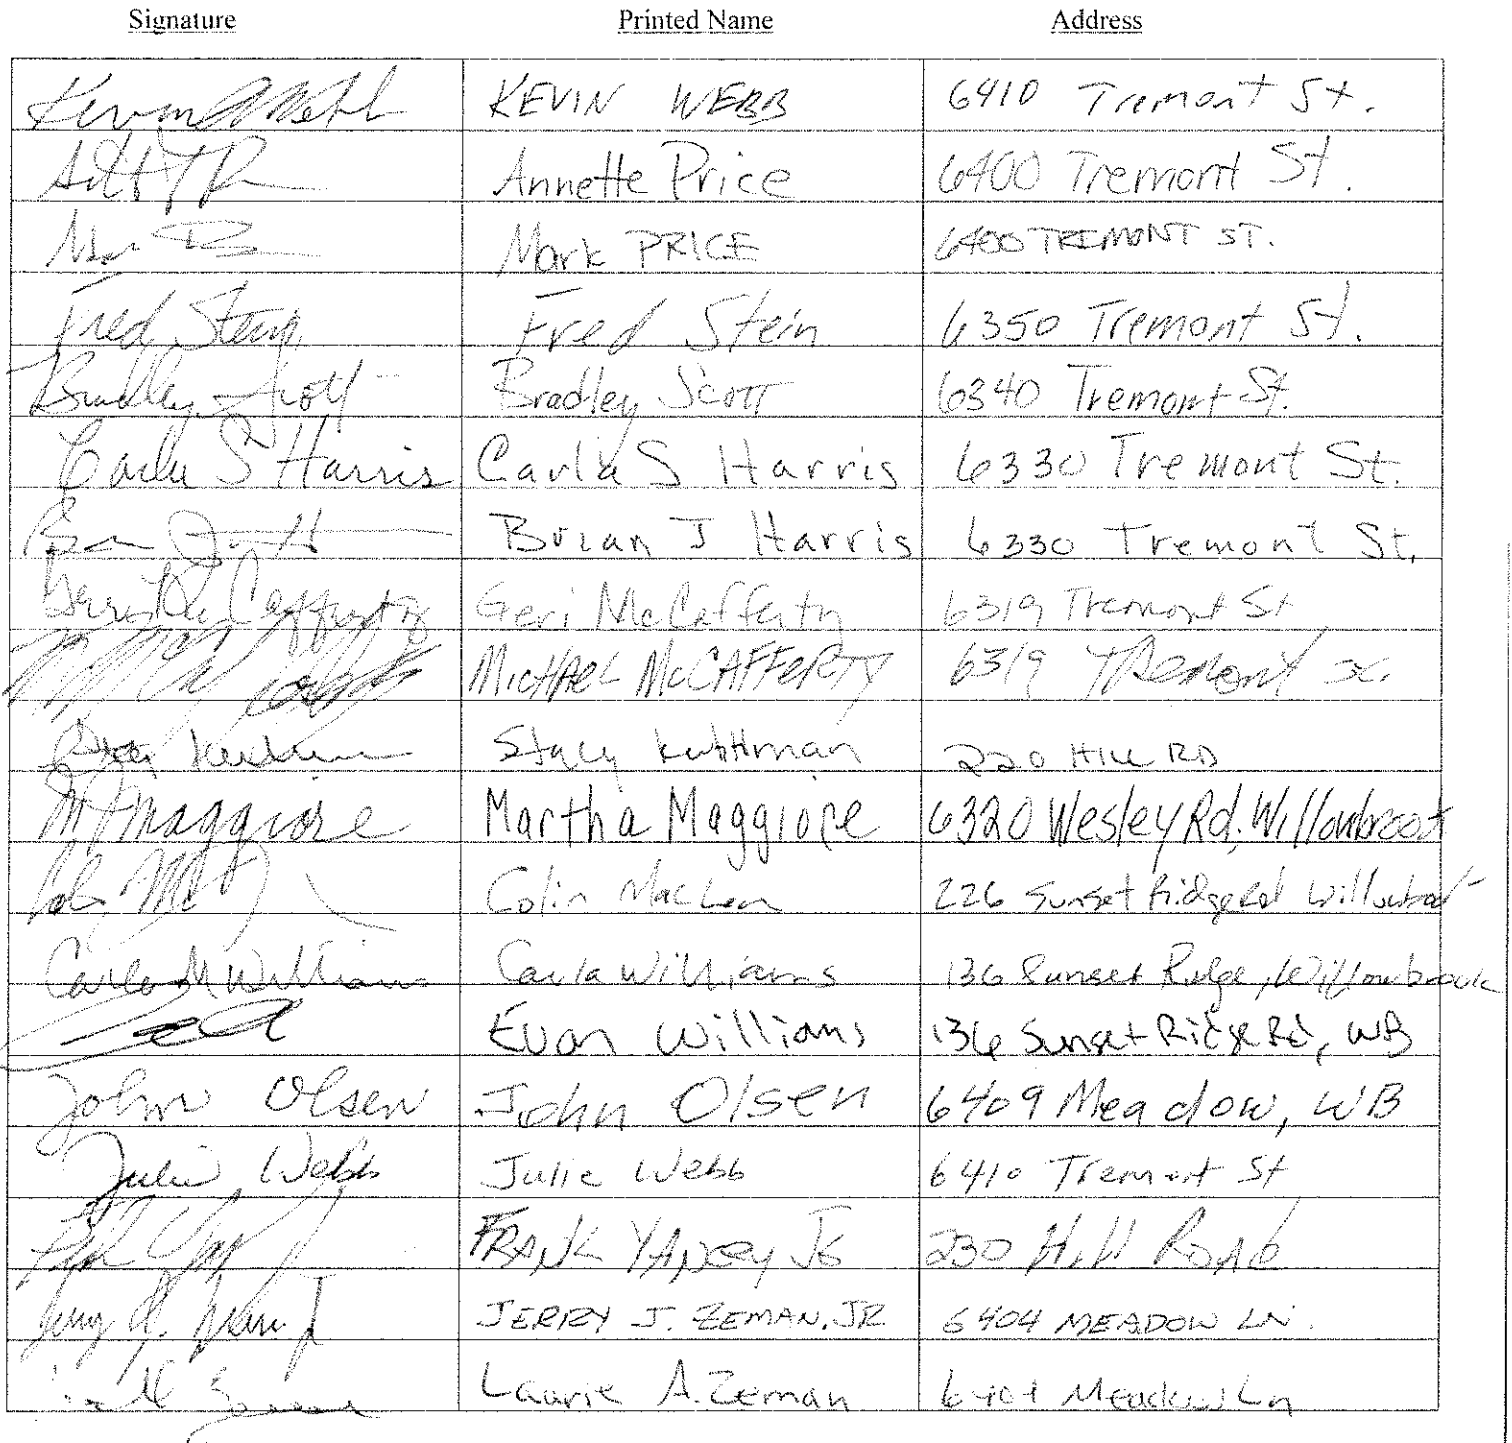 Signature Printed Name Address
Kevin Webb KEVIN WEBB 6410 Tremont St.
Annette Price 6400 Tremont St.
Mark PRICE 6400 TREMONT ST.
Fred Stein Fred Stein 6350 Tremont St.
Bradley Scott Bradley Scott 6340 Tremont St.
Carla S Harris Carla S Harris 6330 Tremont St.
Brian J Harris 6330 Tremont St.
Geri McCafferty Geri McCafferty 6319 Tremont St
MICHAEL McCAFFERTY 6319 Tremont St.
Stacy Kuhlman 220 HILL RD
M Maggiore Martha Maggiore 6320 Wesley Rd, Willowbrook
Colin MacLean 226 Sunset Ridge Rd Willowbrook
Carla M Williams Carla Williams 136 Sunset Ridge, Willowbrook
Evan Williams 136 Sunset Ridge Rd, WB
John Olsen John Olsen 6409 Meadow, WB
Julie Webb Julie Webb 6410 Tremont St
FRANK YANCEY JR 230 Hill Road
JERRY J. ZEMAN, JR 6404 MEADOW LN.
Laurie A. Zeman 6404 Meadow Ln